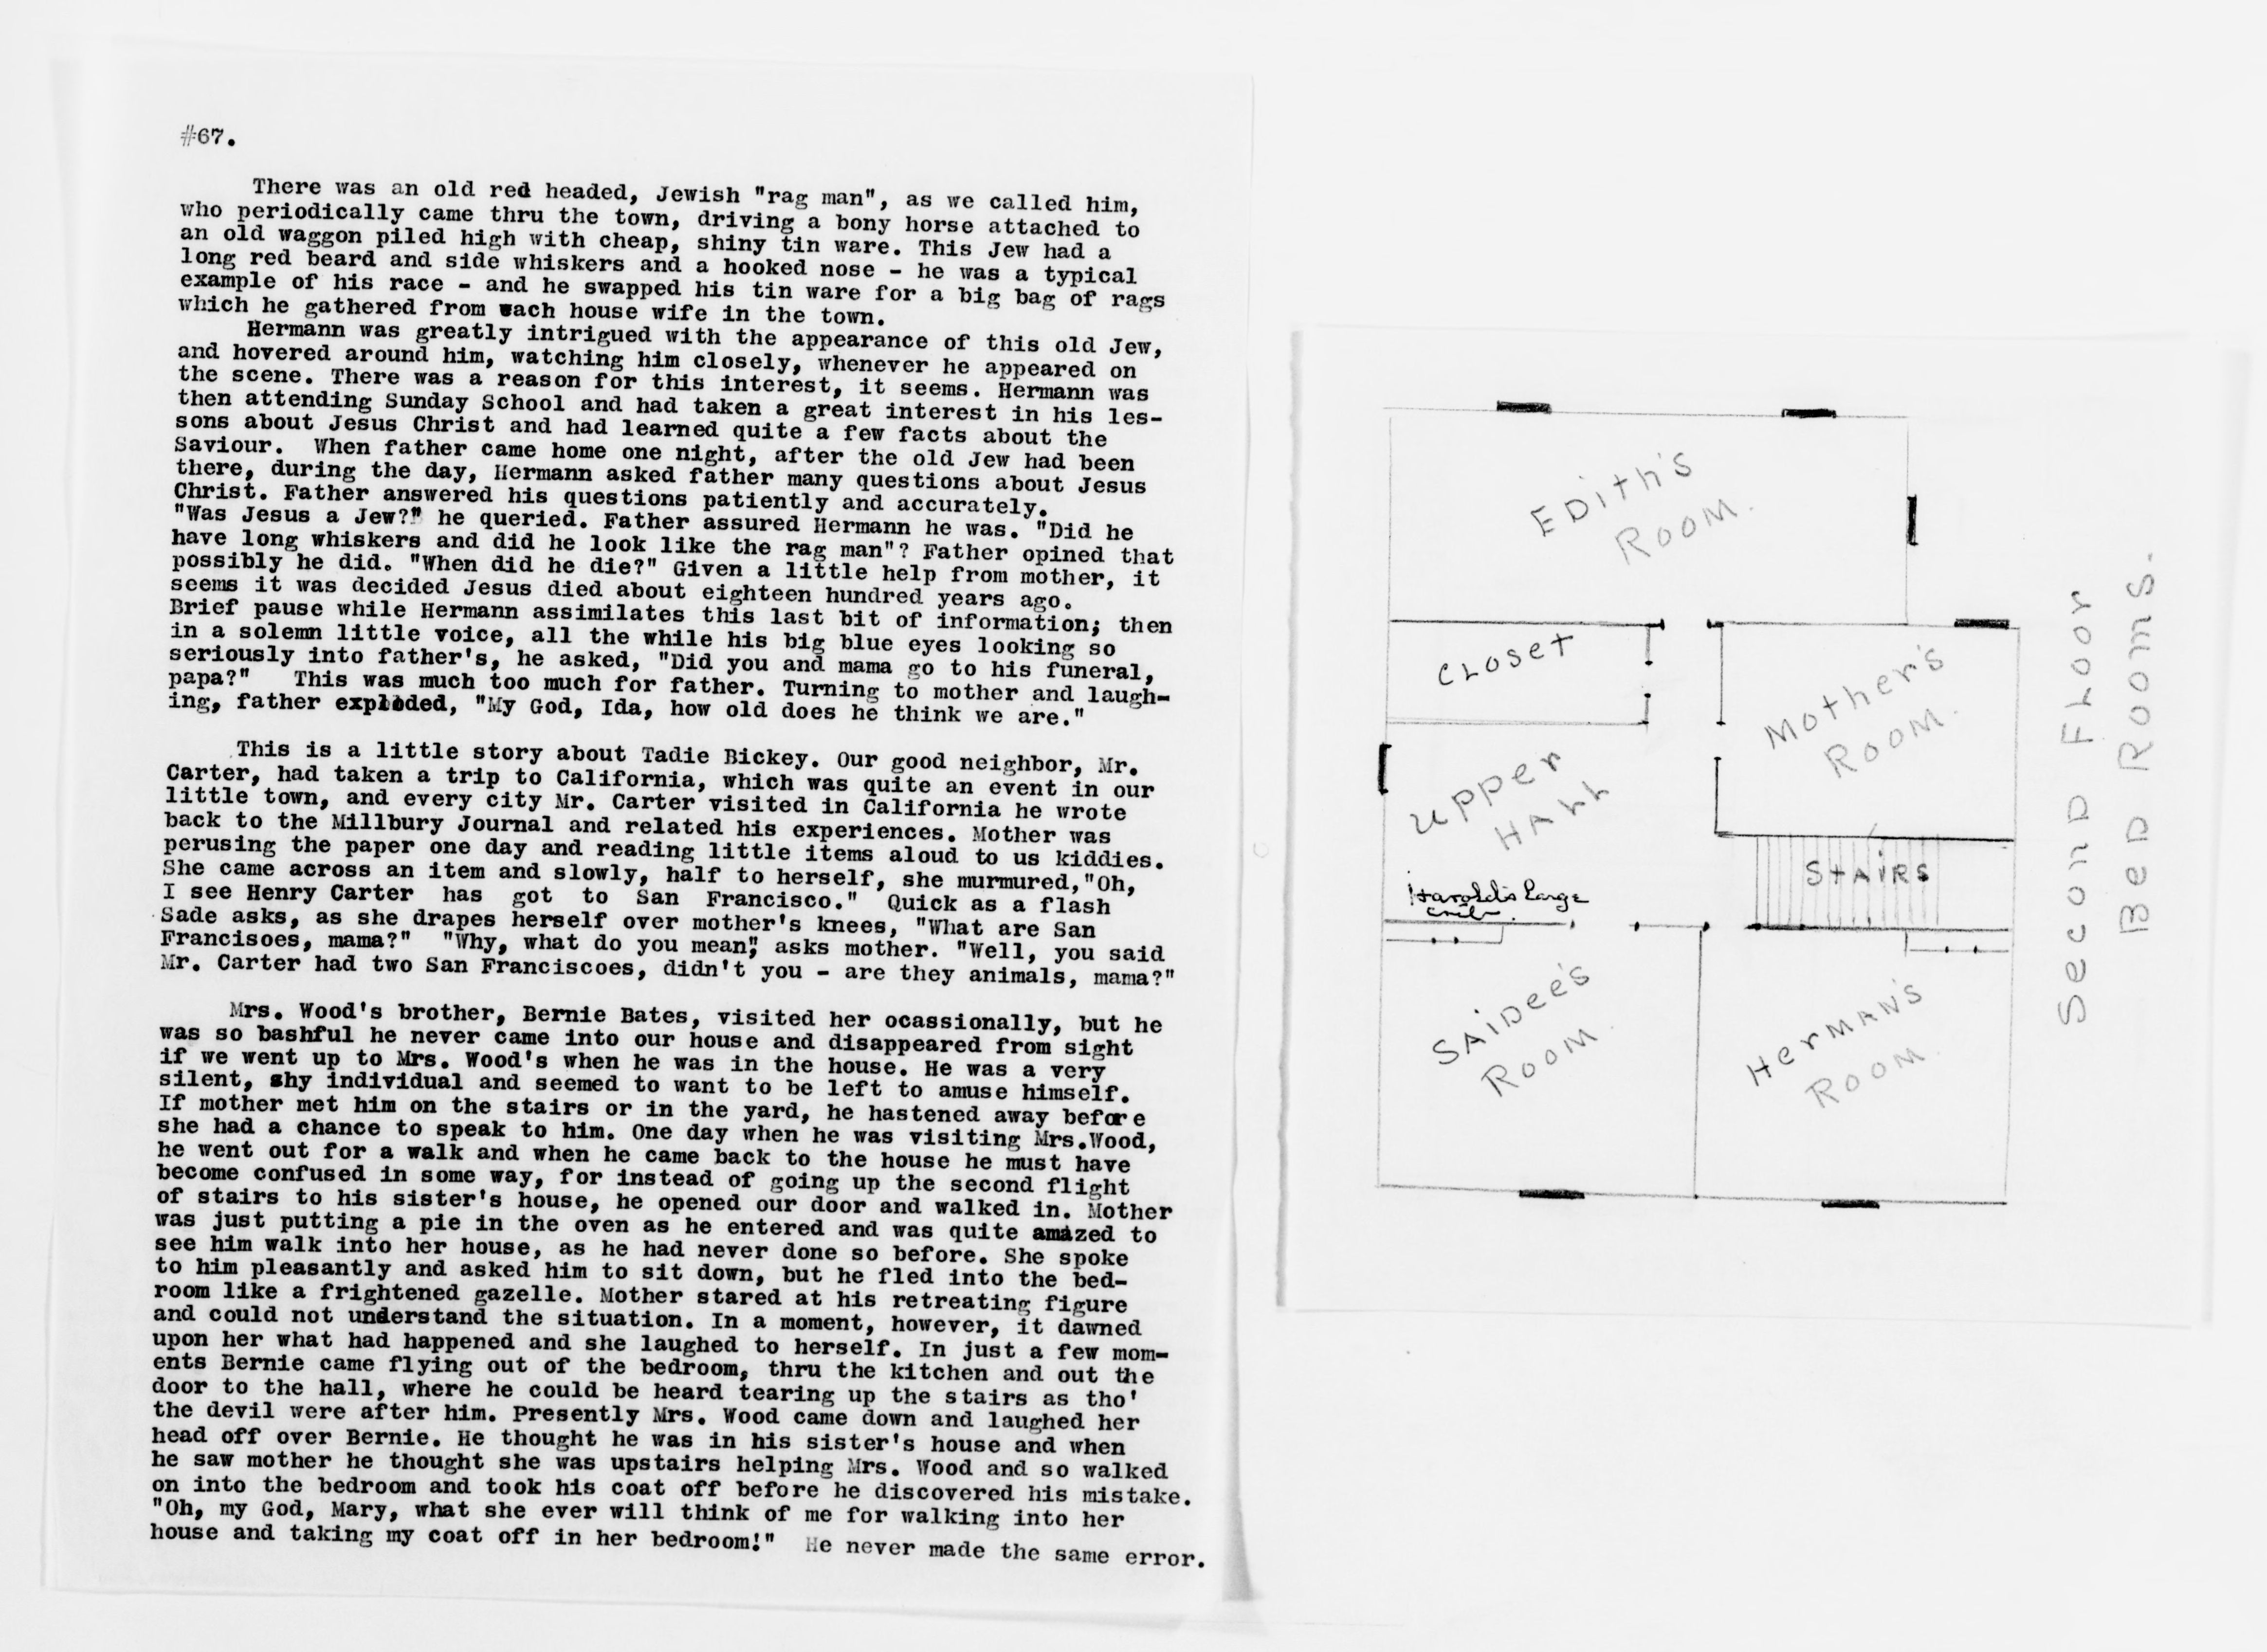 #67.
There was an old red headed, Jewish "rag man", as we called him,
who periodically came thru the town, driving a bony horse attached to
an old waggon piled high with cheap, shiny tin ware. This Jew had a
long red beard and side whiskers and a hooked nose - he was a typical
example of his race - and he swapped his tin ware for a big bag of rags
which he gathered from each house wife in the town.
Hermann was greatly intrigued with the appearance of this old Jew,
and hovered around him, watching him closely, whenever he appeared on
the scene. There was a reason for this interest, it seems. Hermann was
then attending Sunday School and had taken a great interest in his les-
sons about Jesus Christ and had learned quite a few facts about the
Saviour. When father came home one night, after the old Jew had been
there, during the day, Hermann asked father many questions about Jesus
Christ. Father answered his questions patiently and accurately.
"Was Jesus a Jew?" he queried. Father assured Hermann he was. "Did he
have long whiskers and did he look like the rag man"? Father opined that
possibly he did. "When did he die?" Given a little help from mother, it
seems it was decided Jesus died about eighteen hundred years ago.
Brief pause while Hermann assimilates this last bit of information; then
in a solemn little voice, all the while his big blue eyes looking so
seriously into father's, he asked, "Did you and mama go to his funeral,
papa?" This was much too much for father. Turning to mother and laugh-
ing, father exploded, "My God, Ida, how old does he think we are."
This is a little story about Tadie Bickey. Our good neighbor, Mr.
Carter, had taken a trip to California, which was quite an event in our
little town, and every city Mr. Carter visited in California he wrote
back to the Millbury Journal and related his experiences. Mother was
perusing the paper one day and reading little items aloud to us kiddies.
She came across an item and slowly, half to herself, she murmured,"Oh,
I see Henry Carter has got to San Francisco." Quick as a flash
Sade asks, as she drapes herself over mother's knees, "What are San
Francisoes, mama?" "Why, what do you mean", asks mother. "Well, you said
Mr. Carter had two San Franciscoes, didn't you - are they animals, mama?"
Mrs. Wood's brother, Bernie Bates, visited her ocassionally, but he
was so bashful he never came into our house and disappeared from sight
if we went up to Mrs. Wood's when he was in the house. He was a very
silent, shy individual and seemed to want to be left to amuse himself.
If mother met him on the stairs or in the yard, he hastened away before
she had a chance to speak to him. One day when he was visiting Mrs.Wood,
he went out for a walk and when he came back to the house he must have
become confused in some way, for instead of going up the second flight
of stairs to his sister's house, he opened our door and walked in. Mother
was just putting a pie in the oven as he entered and was quite amazed to
see him walk into her house, as he had never done so before. She spoke
to him pleasantly and asked him to sit down, but he fled into the bed-
room like a frightened gazelle. Mother stared at his retreating figure
and could not understand the situation. In a moment, however, it dawned
upon her what had happened and she laughed to herself. In just a few mom-
ents Bernie came flying out of the bedroom, thru the kitchen and out the
door to the hall, where he could be heard tearing up the stairs as tho'
the devil were after him. Presently Mrs. Wood came down and laughed her
head off over Bernie. He thought he was in his sister's house and when
he saw mother he thought she was upstairs helping Mrs. Wood and so walked
on into the bedroom and took his coat off before he discovered his mistake.
"Oh, my God, Mary, what she ever will think of me for walking into her
house and taking my coat off in her bedroom!" He never made the same error.
Edith's
Room.
Closet
Mother's
Room.
Upper
Hall
Stairs
Harold's large
crib.
Saidee's
Room
Herman's
Room.
Second Floor
Bed Rooms.